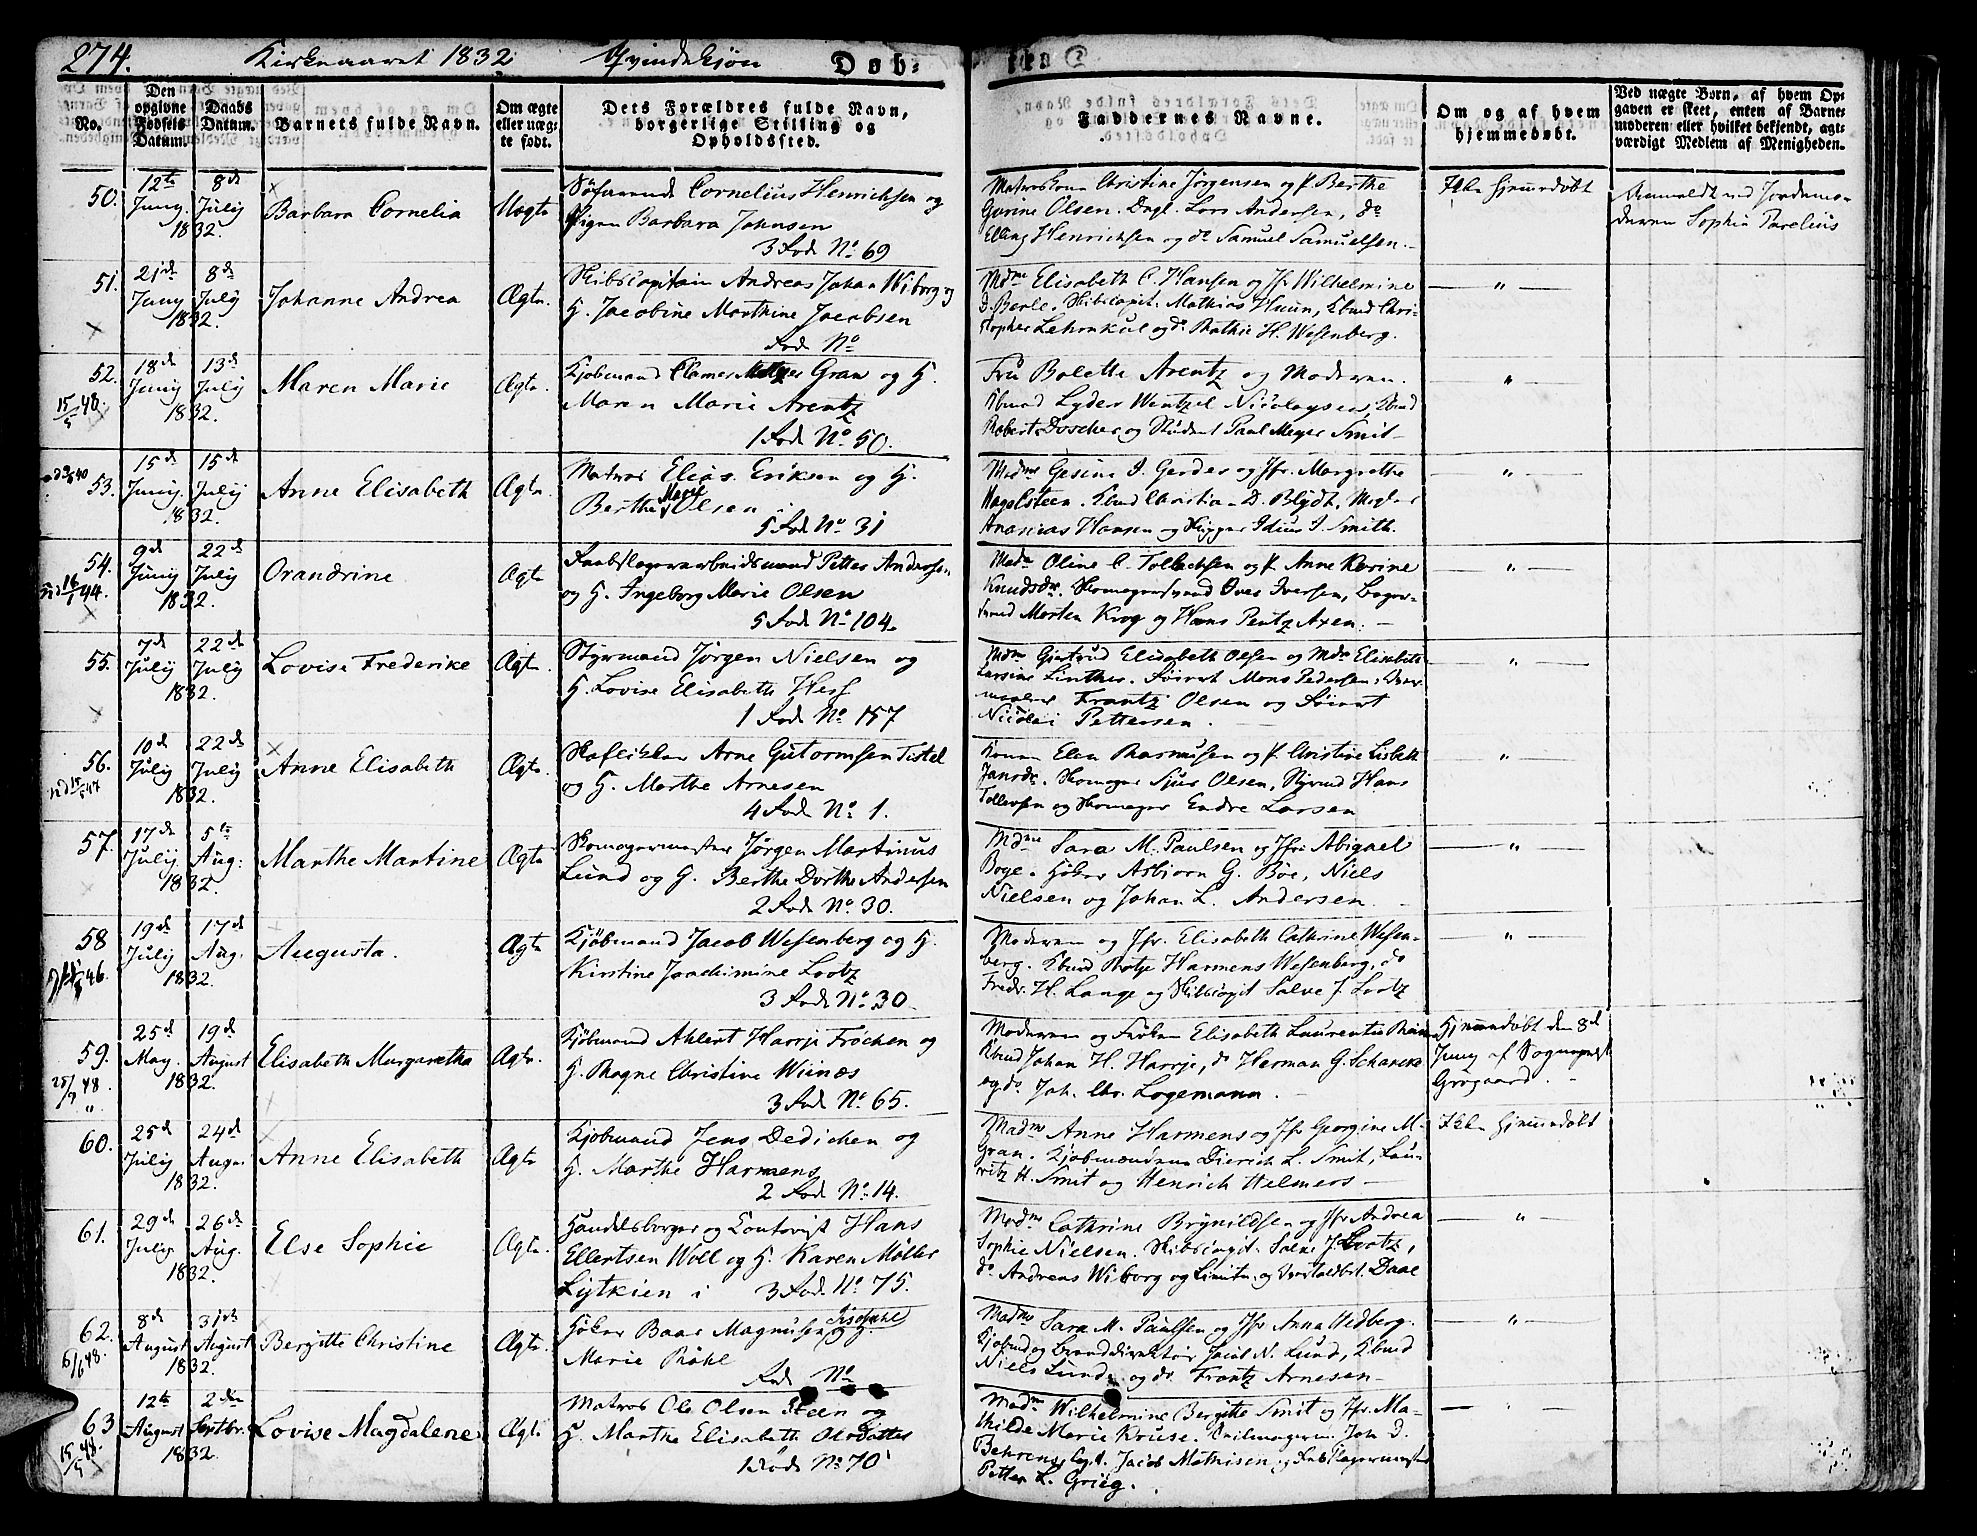 274. Kirkeaaret 1832. Qvindekjøn Døb-
No.
Den opgivne Fødsels Datum.
Daabs Datum.
Barnets fulde Navn.
Om ægte eller uægte født.
Dets Forældres fulde Navn, borgerlige Stilling og Opholdssted.
Faddernes Navne.
Om og af hvem hjemmedøbt.
Ved uægte Børn, af hvem Opgaven er skeet, enten af Barnemoderen eller hvilket bekjendt, agtværdigt Medlem af Menigheden.
50. 12te Juny 1832. 8de July Barbara Cornelia Uægte
Søfarende Cornelius Henrichsen og
Pigen Barbara Johnsen
3 Rode No. 69
Matroskone Christine Jørgensen og P. Berthe
Gurine Olsen. Dagl. Lars Andersen, do
Elling Henrichsen og do Samuel Samuelsen.
Ikke hjemmedøbt
Anmeldt ved Jordemoderen
Sophie Parelius
51. 21de Juny 1832. 8de July Johanne Andrea Ægte.
Skibscapitain Andreas Johan Wiborg og
H. Jacobine Marthine Jacobsen
Rode No
Mdme Elisabeth C. Hansen og Jfr Wilhelmine
D. Berle. Skibscapit. Mathias Huun, Kbmd Christopher
Lehmkul og do Rathie H. Wesenberg.
"
52. 18de Juny 1832. 13de July Maren Marie Ægte.
15/5 48.
Kjøbmand Clames Gran og H.
Maren Marie Arentz
1 Rode No. 50.
Fru Bolette Arentz og Moderen.
Kbmd Lyder Wentzel Nicolaysen, Kbmd
Robert Doscher og Student Paul Meyer Smit
"
53. 15de Juny 1832. 15de July Anne Elisabeth Ægte.
Matros Elias Eriksen og H.
Berthe Marie Olsen
5 Rode No. 31
Mdme Gesine I. Gerdes og Jfr. Margrethe
Hagelsteen. Kbmd Christian D. Blydt, Mægler
Ananias Hansen og Skipper I. Smith.
"
54. 9de Juny 1832. 22de July Orandrine Ægte
Petter Andersen
og H. Ingeborg Marie Olsen
5 Rode No. 104.
Mdme Oline C. Tollechsen og P. Anne Karine
Knudsdr. Skomagersvend Iver Iversen,
Morten Krog og Hans Pentz Axen.
"
55. 7de July 1832. 22de July Lovise Frederike Ægte.
Styrmand Jørgen Nielsen og
H. Lovise Elisabeth Hess
1 Rode No. 157
Mdme Giertrud Elisabeth Olsen og Mdme Elisabeth
Larsine Linther. Mons Pedersen,
Frantz Olsen og
Nicolai Pettersen.
"
56. 10de July 1832. 22de July Anne Elisabeth Ægte.
Arne Gutormsen Tistel
og H. Marthe Arnesen
4 Rode No. 1.
Konen Elen Rasmusen og P. Christine Lisbeth
Jansdr. Skomager Sjur Olsen, Styrmd Hans
Tollevsen og Skomager Endre Larsen
"
57. 17de July 1832. 5te Aug: Marthe Martine Ægte
Skomagermester Jørgen Martinus
Lund og H. Berthe Dorthe Andersen
2 Rode No. 30.
Mdme Sara M. Paulsen og Jfr. Abigael
Boge. Høker Asbiørn G. Böe, Niels
Nielsen og Johan L. Andersen.
"
58 19de July 1832. 17de Aug. Augusta. Ægte
Kjøbmand Jacob Wesenberg og H.
Kirstine Joachimine Lootz
3 Rode No. 30.
Moderen og Jfr. Elisabeth Cathrine Wesenberg.
Kbmd Rotje Harmens Wesenberg, do
Fredr. H. Lange og Skibscapit Salve J. Lootz
"
59. 25de May. 1832. 19de August Elisabeth Margaretha Ægte.
Kjøbmand Ahlert Harrje Fröchen og
H. Magne Christine Wiinæs
3 Rode No. 65.
Moderen og Frøken Elisabeth Laurentia
Kbmd Johan H. Harrje, do Herman G. Schancke
og do. Joh. Chr. Logemann.
Hjemmedøbt den 8de
Juny af Sognepræst
Grøgaard.
60. 25de July 1832. 24de Aug. Anne Elisabeth Ægte
Kjøbmand Jens Dedichen og
H. Marthe Harmens
2 Rode No. 14.
Madme Anne Harmens og Jfr Georgine M.
Gran. Kjøbmændene Dierich L. Smit, Lauritz
H. Smit og Henrich Helmers
Ikke hjemmedøbt
61. 29de July. 1832. 26de Aug. Else Sophie Ægte.
Handelsborger og Contorist Hans
Ellertsen Woll og H. Karen Møller
Lytkien
3 Rode No. 75.
Madme Cathrine Brynildsen og Jfr Andrea
Sophie Nielsen. Skibscapit. Salve J. Lootz,
do. Andreas Wiborg og Daae
"
62. 8de August 1832. 31de August Bergitte Christine Ægte.
Høker Baar Magnusen og H.
Marie Röhl
Rode No
Madme Sara M. Paulsen og Jfr Anna Hedberg.
Kjøbmd og Branddirektør Jacob N. Lund, Kbmd
Niels Lund og do. Frantz Arnesen
"
63 12te August 1832. 2den Septbr. Lovise Magdalene Ægte.
15/5 48.
Matros Ole Olsen Steen og
H. Marthe Elisabeth Olsdatter
1 Rode No. 70
Madme Wilhelmine Bergitte Smit og Jfr. Mathilde
Marie Kruse. Joh. D.
Behrens, Capt. Jacob Mathisen og
Petter L. Grieg.
"